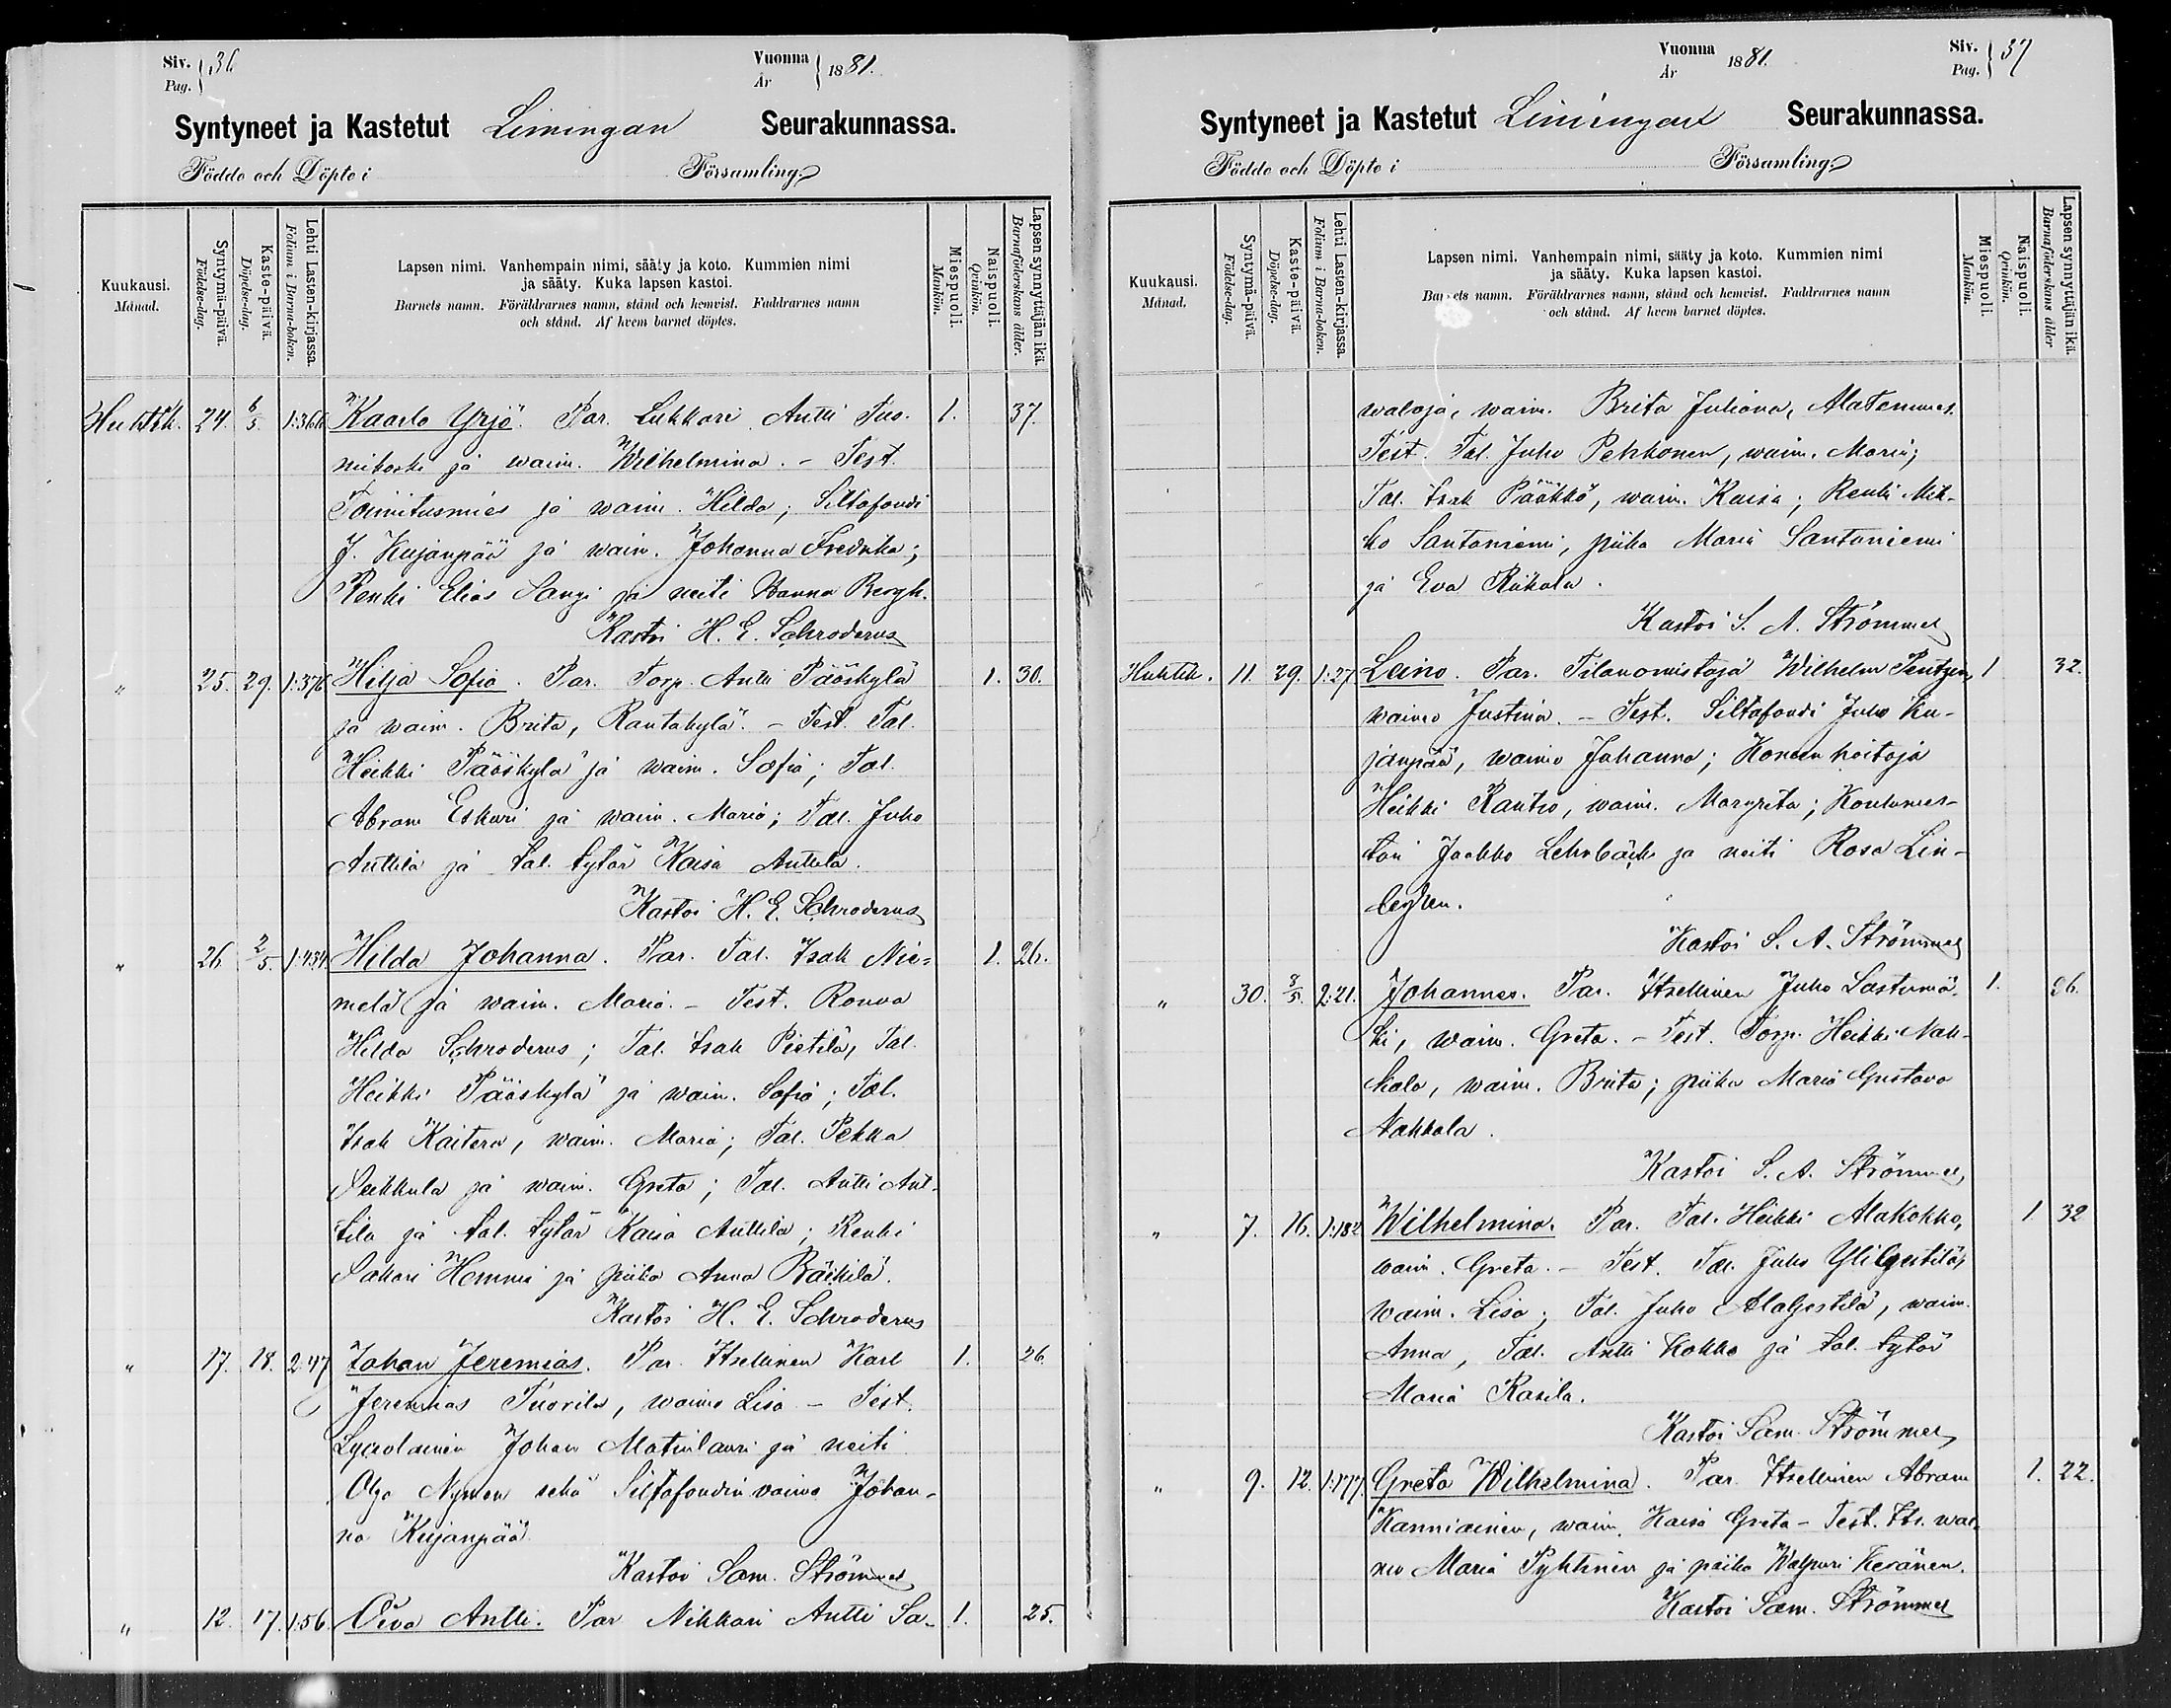 Siv. 36.
Pag.
Vuonna 1881.
År
Syntyneet ja Kastetut Limingan Seurakunnassa.
Födde och Döpte i Församling.
Kuukausi. Månad.
Syntymä-päivä. Födelse-dag.
Kaste-päivä. Döpelse-dag.
Lehti Lasten-kirjassa. Folium i Barna-boken.
Lapsen nimi. Vanhempain nimi, sääty ja koto. Kummien nimi
ja sääty. Kuka lapsen kastoi.
Barnets namn. Föräldrarnes namn, stånd och hemvist. Faddrarnes namn
och stånd. Af hvem barnet döptes.
Miespuoli. Mankön.
Naispuoli. Qvinkön.
Lapsen synnyttäjän ikä. Barnaföderskans ålder.
Huhtik. 24. 6/5. 1:366 Kaarlo Yrjö. Par. Lukkari Antti Tuo- 1. 37.
mikoski ja waim. Wilhelmina. - Test.
Toimitusmies ja waim. Hilda; Siltafoudi
J. Kujanpää ja waim. Johanna Fredrika;
Renki Elias Sangi ja neiti Hanna Bergh.
Kastoi H. E. Schroderus
" 25. 29. 1:376 Hilja Sofia. Par. Torp. Antti Pääskylä 1. 30.
ja waim. Brita, Rantakylä. - Test. Tal.
Heikki Pääskylä ja waim. Sofia; Tal.
Abram Eskuri ja waim. Maria; Tal. Juho
Anttila ja tal. tytär Kaisa Anttila.
Kastoi H. E. Schroderus
" 26. 2/5. 1:434 Hilda Johanna. Par. Tal. Isak Nie- 1. 26.
melä ja waim. Maria. - Test. Rouva
Hilda Schroderus; Tal. Isak Pietilä, Tal.
Heikki Pääskylä ja waim. Sofia; Tal.
Isak Kaitera, waim. Maria; Tal. Pekka
Seikkula ja waim. Greta; Tal. Antti Ant-
tila ja tal. tytär Kaisa Anttila; Renki
Sakari Hommi ja piika Anna Räihilä.
Kastoi H. E. Schroderus
" 17. 18. 2:47 Johan Jeremias. Par. Itsellinen Karl 1. 26.
Jeremias Tuorila, waimo Lisa - Test.
Lyseolainen Johan Matinlauri ja neiti
Olga Nyman sekä Siltafoudin vaimo Johan-
na Kujanpää.
Kastoi Sam. Strömmer
" 12. 17. 1:56 Oiva Antti. Par Nikkari Antti Sa- 1. 25.
Vuonna 1881.
År
Siv. 37
Pag.
Syntyneet ja Kastetut Limingan Seurakunnassa.
Födde och Döpte i Församling.
Kuukausi. Månad.
Syntymä-päivä. Födelse-dag.
Kaste-päivä. Döpelse-dag.
Lehti Lasten-kirjassa. Folium i Barna-boken.
Lapsen nimi. Vanhempain nimi, sääty ja koto. Kummien nimi
ja sääty. Kuka lapsen kastoi.
Barnets namn. Föräldrarnes namn, stånd och hemvist. Faddrarnes namn
och stånd. Af hvem barnet döptes.
Miespuoli. Mankön.
Naispuoli. Qvinkön.
Lapsen synnyttäjän ikä. Barnaföderskans ålder
waloja, waim. Brita Juliana, Alatemmes.
Test. Tal. Juho Pekkonen, waim. Maria;
Tal. Isak Pääkkö, waim. Kaisa; Renki Mik-
ko Santaniemi, piika Maria Santaniemi
ja Eva Riikola.
Kastoi S. A. Strömmer
Huhtik. 11. 29. 1:27 Leino. Par. Tilanomistaja Wilhelm Pentzin, 1 32.
waimo Justina. - Test. Siltafoudi Juho Ku-
janpää, waimo Johanna; Koneenhoitaja
Heikki Rautio, waim. Margreta; Koulumes-
tari Jaakko Lehrbäck ja neiti Rosa Lin-
Kastoi S. A. Strömmer
" 30. 8/5. 2:21. Johannes. Par. Itsellinen Juho Lastumä- 1. 26.
ki, waim. Greta. - Test. Torp. Heikki Nah-
kala, waim. Brita; piika Maria Gustava
Nahkala.
Kastoi S. A. Strömmer
" 7. 16. 1:182 Wilhelmina. Par. Tal. Heikki Alakokko, 1. 32
waim. Greta. - Test. Tal. Juho Yligestilä,
waim. Lisa; Tal. Juho Alagestilä, waim.
Anna, Tal. Antti Kokko ja tal. tytär
Maria Rasila.
Kastoi Sam. Strömmer
" 9. 12. 1:177. Greta Wilhelmina. Par. Itsellinen Abram 1. 22.
Kanniainen, waim. Kaisa Greta - Test. Its. wai-
mo Maria Pyhtinen ja piika Walpuri Keränen.
Kastoi Sam. Strömmer